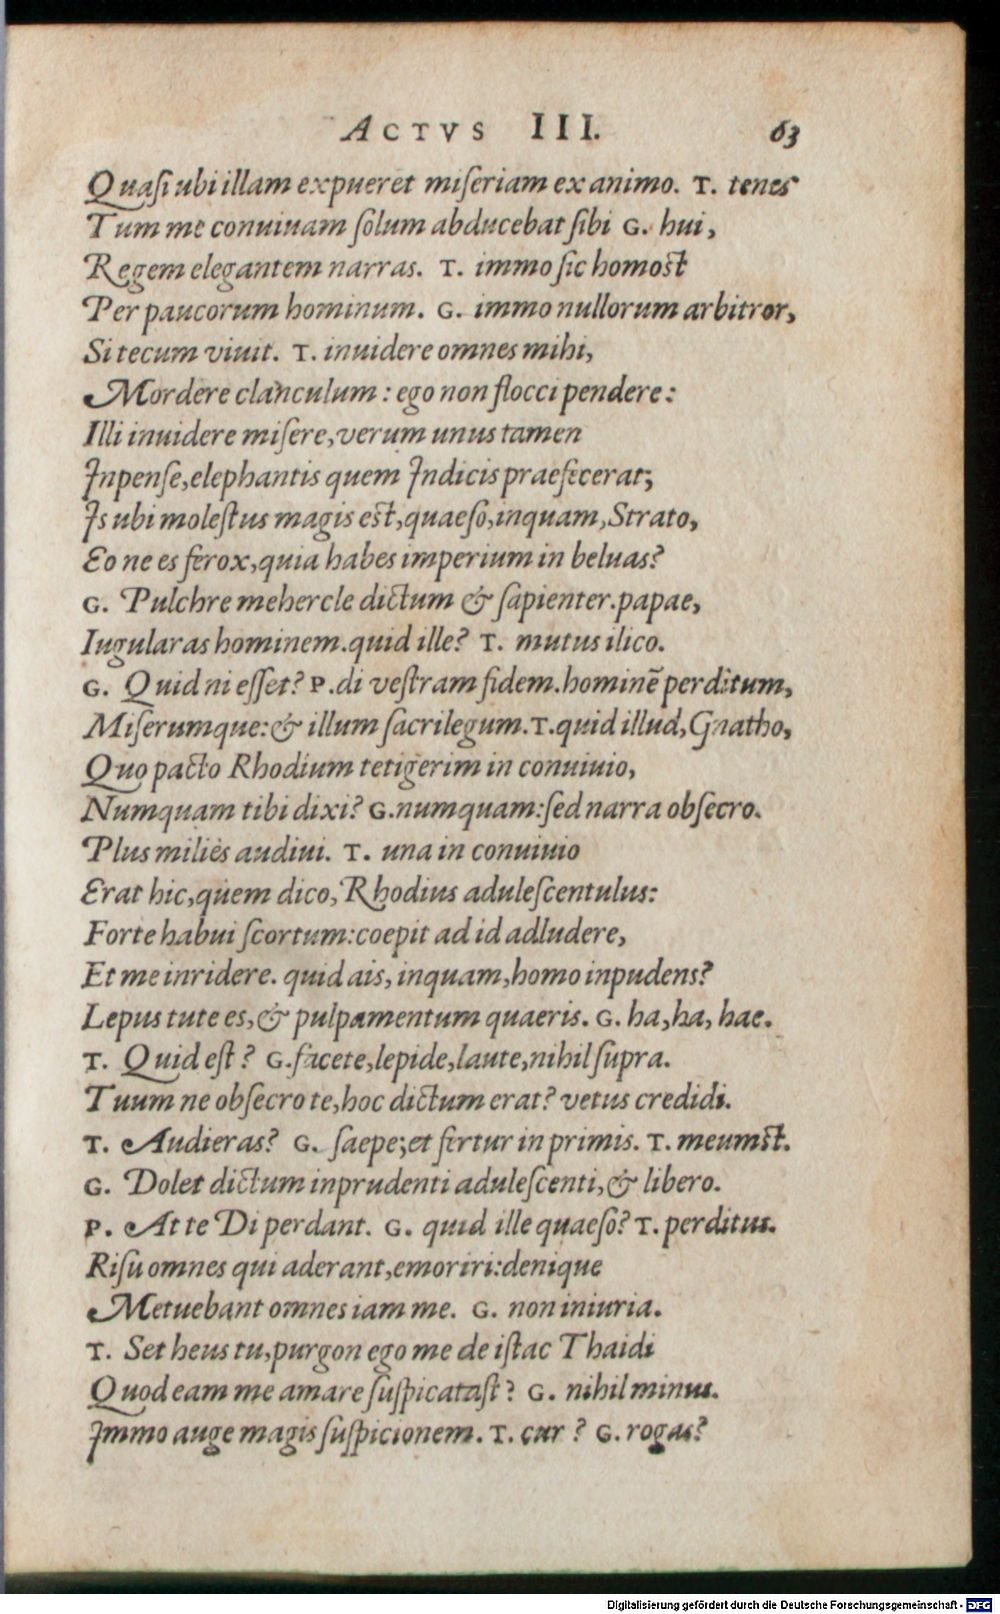 ACTVS III. 63
Quaſi ubi illam expueret miſeriam ex animo. T. tenes
Tum me conuiuam ſolum abducebat ſibi G. hui,
Regem elegantem narras. T. immo ſic homoſt
Per paucorum hominum. G. immo nullorum arbitror,
Si tecum viuit. T. inuidere omnes mihi,
Mordere clanculum: ego non flocci pendere:
Illi inuidere miſere, verum unus tamen
Inpenſe, elephantis quem Indicis praefecerat;
Is ubi moleſtus magis eſt, quaeſo, inquam, Strato,
Eo ne es ferox, quia habes imperium in beluas?
G. Pulchre mehercle dictum & ſapienter. papae,
Iugularas hominem. quid ille? T. mutus ilico.
G. Quid ni eſſet? P. di veſtram fidem. hominē perditum,
Miſerumque: & illum ſacrilegum. T. quid illud, Gnatho,
Quo pacto Rhodium tetigerim in conuiuio,
Numquam tibi dixi? G. numquam: ſed narra obſecro.
Plus milies audiui. T. una in conuiuio
Erat hic, quem dico, Rhodius aduleſcentulus:
Forte habui ſcortum: coepit ad id adludere,
Et me inridere. quid ais, inquam, homo inpudens?
Lepus tute es, & pulpamentum quaeris. G. ha, ha, hae.
T. Quid eſt? G. facete, lepide, laute, nihil ſupra.
Tuum ne obſecro te, hoc dictum erat? vetus credidi.
T. Audieras? G. ſaepe; et fertur in primis. T. meumſt.
G. Dolet dictum inprudenti aduleſcenti, & libero.
P. At te Di perdant. G. quid ille quaeſo? T. perditus.
Riſu omnes qui aderant, emoriri: denique
Metuebant omnes iam me. G. non iniuria.
T. Set heus tu, purgon ego me de iſtac Thaidi
Quod eam me amare ſuſpicataſt? G. nihil minus.
Immo auge magis ſuſpicionem. T. cur? G. rogas?
Digitalisierung gefördert durch die Deutsche Forschungsgemeinschaft - DFG